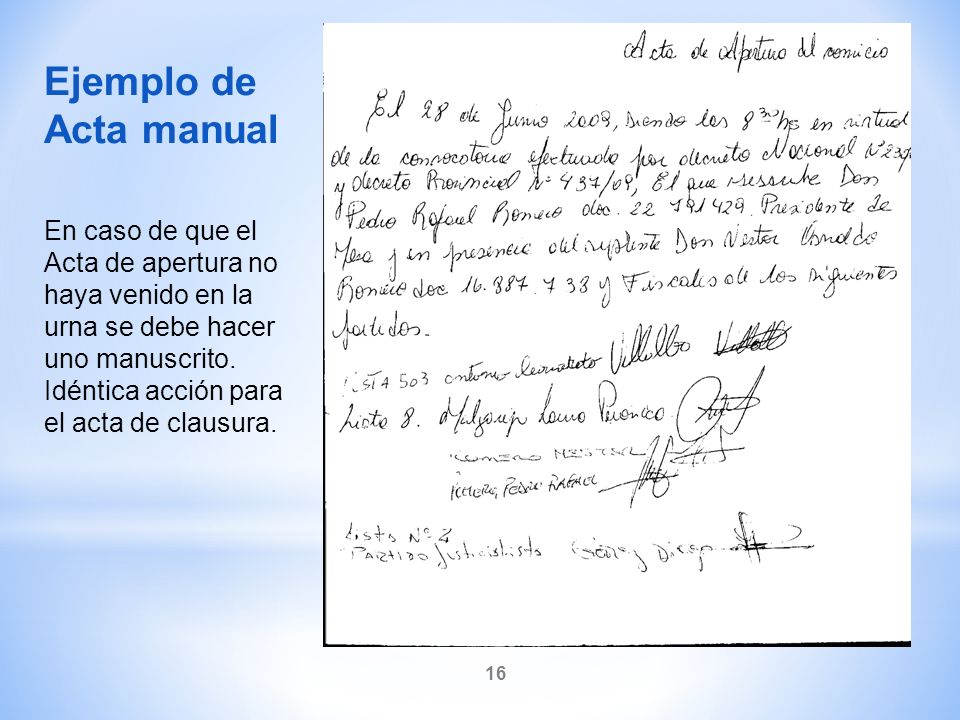 Ejemplo de
Acta manual
En caso de que el
Acta de apertura no
haya venido en la
urna se debe hacer
uno manuscrito.
Idéntica acción para
el acta de clausura.
Acta de Apertura del comicio
El 28 de Junio 2009, siendo las 8 hs en virtud
de la convocatoria efectuada por decreto Nacional Nº
y decreto Provincial Nº 437/09, El que suscribe Don
Pedro Rafael Romero doc. 22 791429. Presidente de
Mesa y en presencia del suplente Don Nestor
Romero doc 16.887.738 y Fiscales de los siguientes
partidos.
LISTA 503 Antonio Villalba
Lista 8. Laura
ROMERO NESTOR
ROMERO PEDRO RAFAEL
Lista Nº 2
Partido Justicialista Diego
16